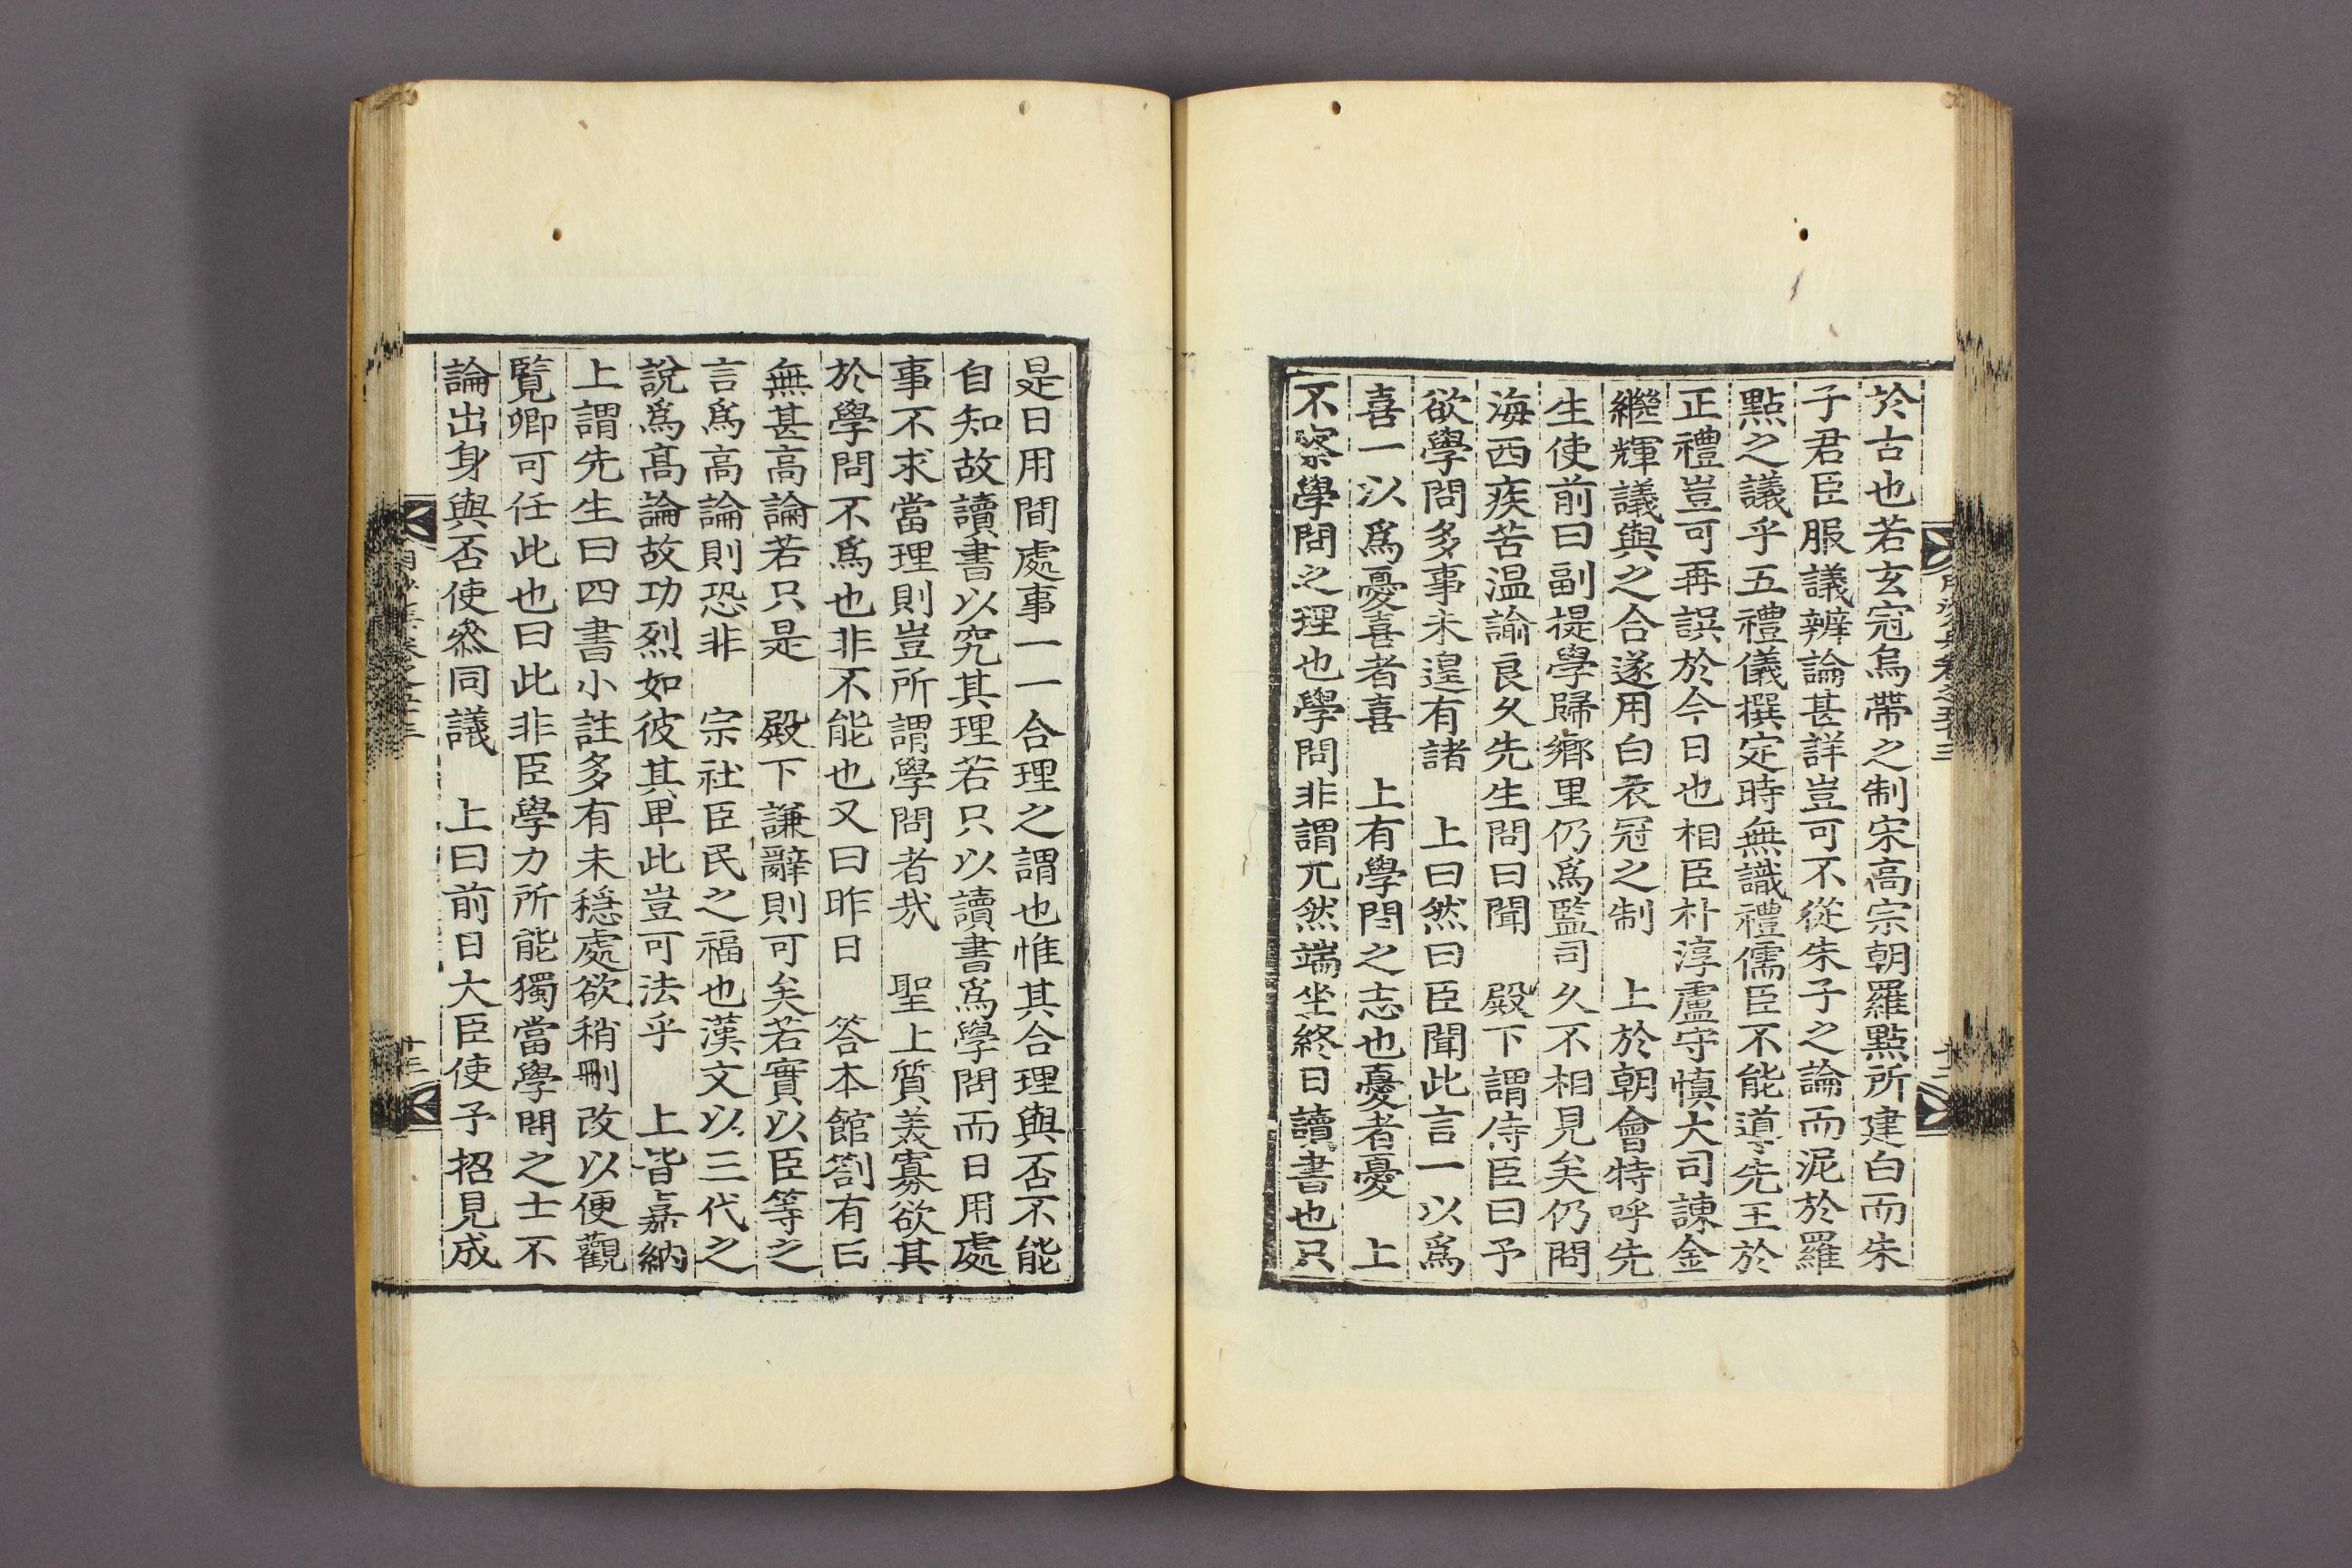 於古也若玄冠烏帶之制宋高宗朝羅點所建白而朱
子君臣服議辨論甚詳豈可不從朱子之論而泥於羅
點之議乎五禮儀撰定時無識禮儒臣不能導先王於
正禮豈可再誤於今日也相臣朴淳盧守愼大司諫金
繼輝議與之合遂用白衣冠之制　上於朝會特呼先
生使前曰副提學歸鄕里仍爲監司久不相見矣仍問
海西疾苦温諭良久先生問曰聞　殿下謂侍臣曰予
欲學問多事未遑有諸　上曰然曰臣聞此言一以爲
喜一以爲憂喜者喜　上有學問之志也憂者憂　上
不察學問之理也學問非謂兀然端坐終日讀書也只
是日用間處事一一合理之謂也惟其合理與否不能
自知故讀書以究其理若只以讀書爲學問而日用處
事不求當理則豈所謂學問者哉　聖上質美寡欲其
於學問不爲也非不能也又曰昨日　答本館劄有曰
無甚高論若只是　殿下謙辭則可矣若實以臣等之
言爲高論則恐非　宗社臣民之福也漢文以三代之
說爲高論故功烈如彼其卑此豈可法乎　上皆嘉納
上謂先生曰四書小註多有未穩處欲稍刪改以便觀
覽卿可任此也曰此非臣學力所能獨當學問之士不
論出身與否使叅同議　上曰前日大臣使予招見成